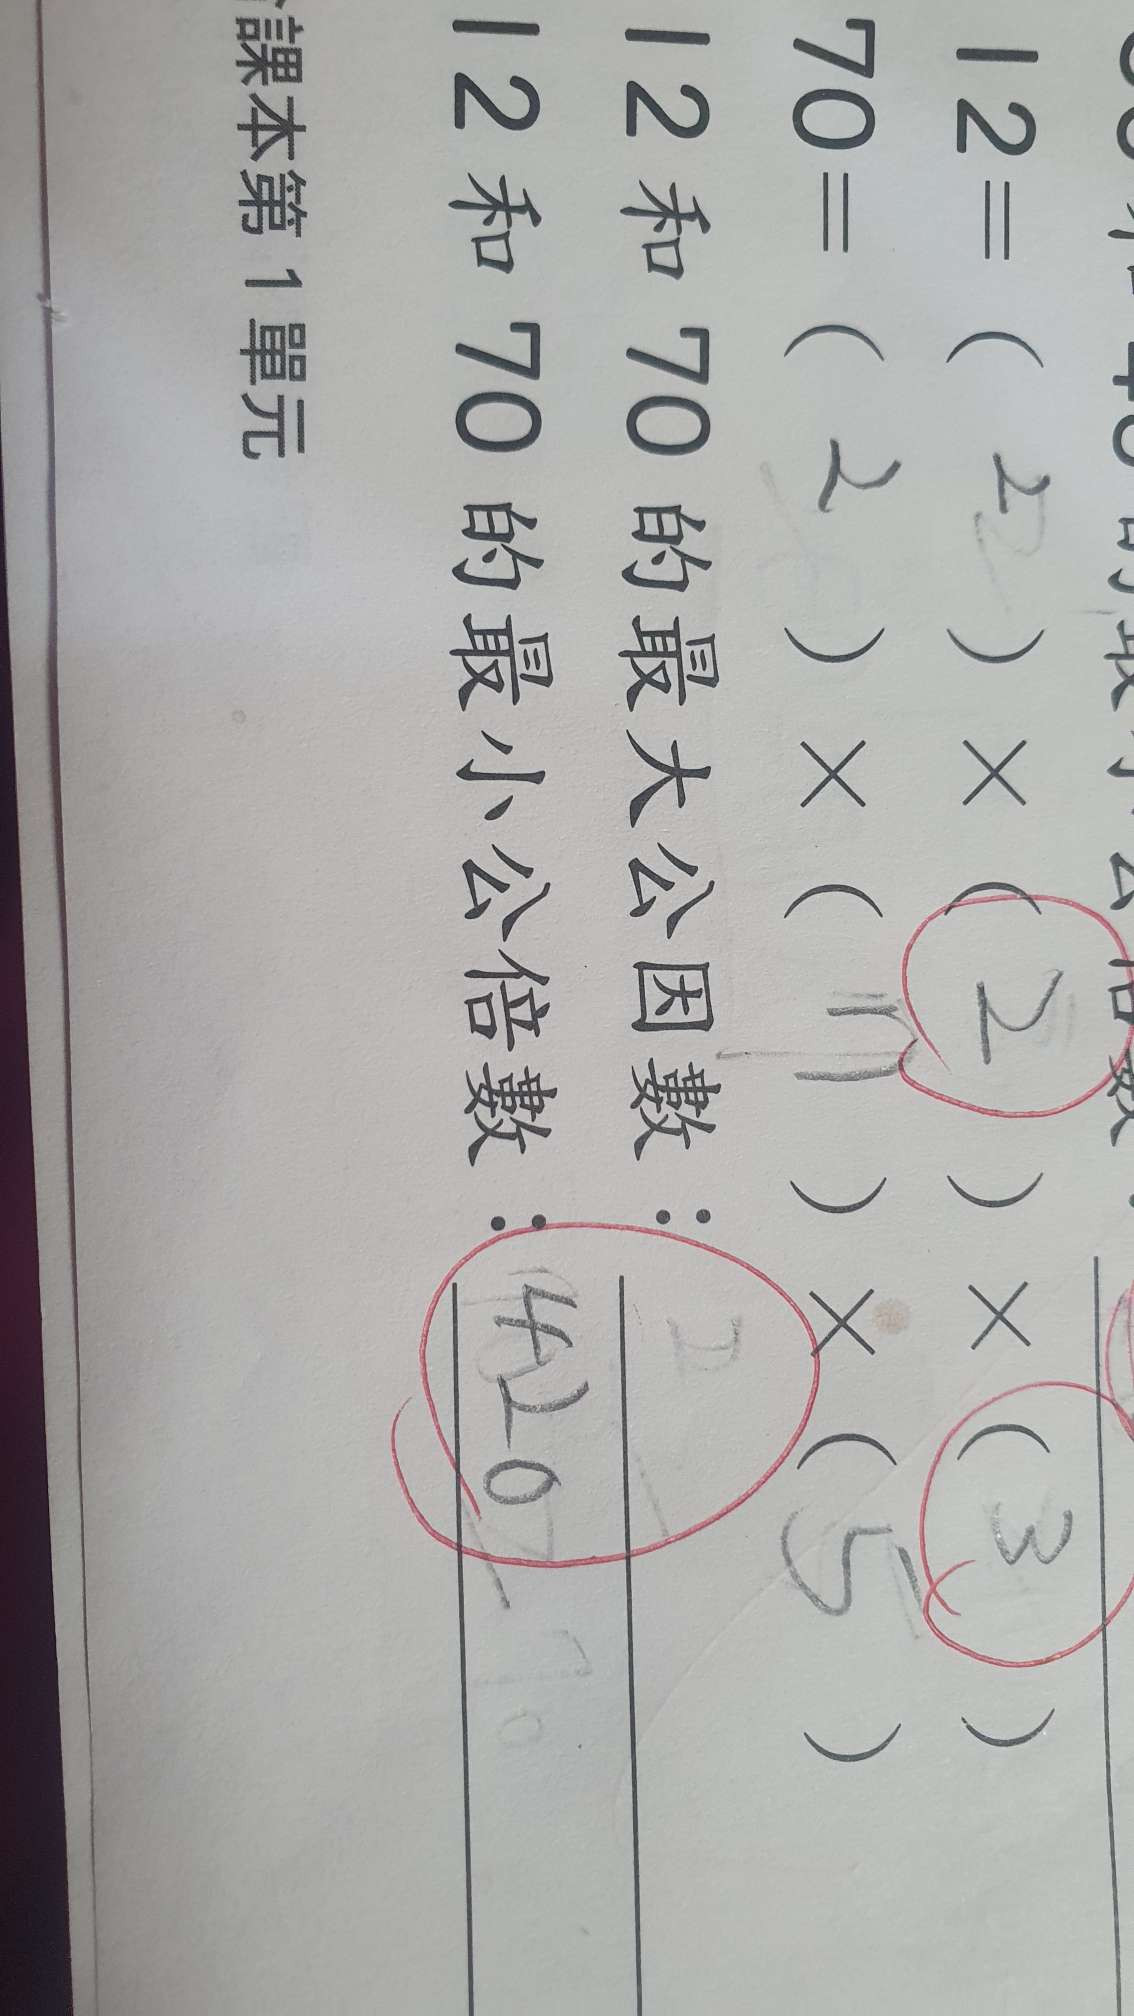 12=( 2 )×( 2 )×( 3 )
70=( 2 )×( )×( 5 )
12 和 70 的最大公因數：2
12 和 70 的最小公倍數：420
課本第 1 單元